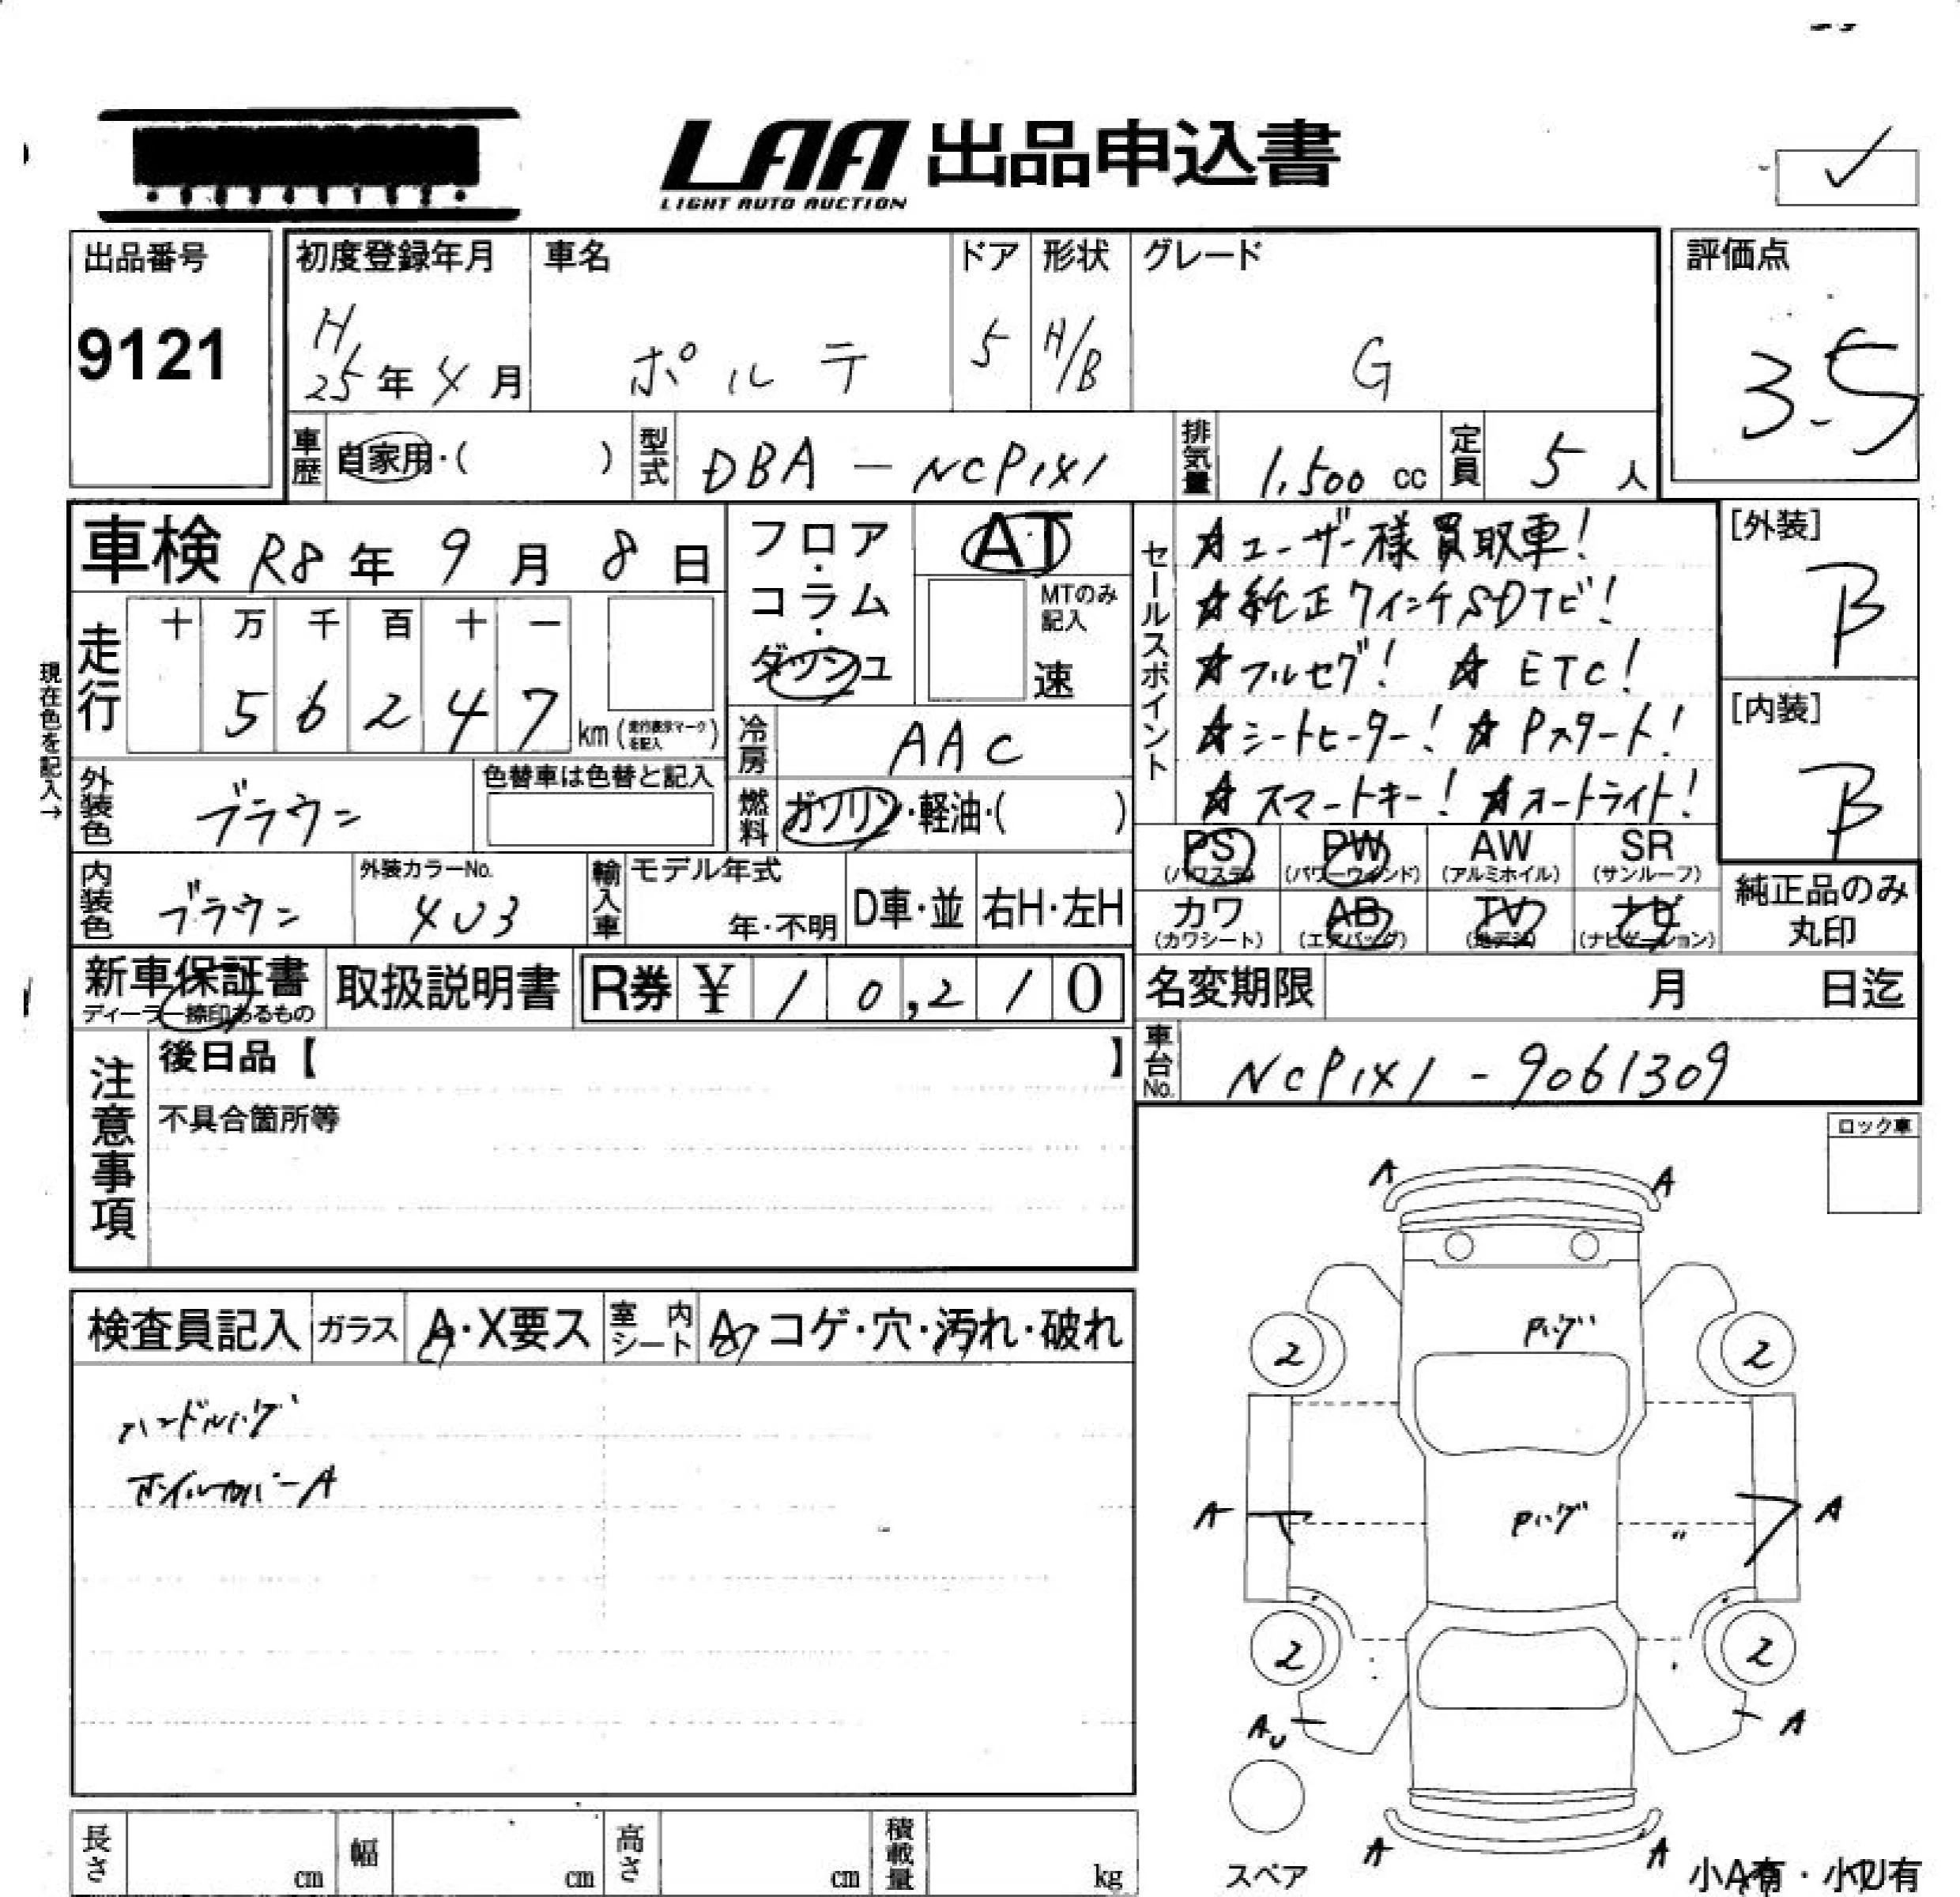 LAA 出品申込書
LIGHT AUTO AUCTION
出品番号
9121
初度登録年月
H
25年4月
車名
ポルテ
ドア
5
形状
H/B
グレード
G
評価点
3.5
車歴
自家用・( )
型式
DBA-NCP141
排気量
1,500 cc
定員
5 人
車検 R8年9月8日
走行
十 万 千 百 十 一
5 6 2 4 7 km
(走行表示マークを記入)
現在色を記入→
フロア・コラム・ダッシュ
AT
MTのみ記入
速
冷房
AAC
燃料
ガソリン・軽油・( )
外装色
ブラウン
色替車は色替と記入
内装色
ブラウン
外装カラーNo.
4U3
輸入車
モデル年式
年・不明
D車・並
右H・左H
セールスポイント
☆ユーザー様買取車!
☆純正7インチSDナビ!
☆フルセグ! ☆ETC!
☆シートヒーター! ☆Pスタート!
☆スマートキー! ☆オートライト!
[外装]
B
[内装]
B
PS
(パワステ)
PW
(パワーウィンド)
AW
(アルミホイル)
SR
(サンルーフ)
カワ
(カワシート)
AB
(エアバッグ)
TV
(地デジ)
ナビ
(ナビゲーション)
純正品のみ
丸印
新車保証書
ディーラー捺印あるもの
取扱説明書
R券 ¥ 10,210
名変期限 月 日迄
車台No.
NCP141-9061309
注意事項
後日品【 】
不具合箇所等
ロック車
検査員記入
ガラス
A・X要ス
室内シート
A・コゲ・穴・汚れ・破れ
ハンドルハゲ
ホイールカバーA
A A
Pハゲ
2 2
A Pハゲ 〃 A
2 2
AU A
スペア
A A
小A有・小U有
長さ cm
幅 cm
高さ cm
積載量 kg